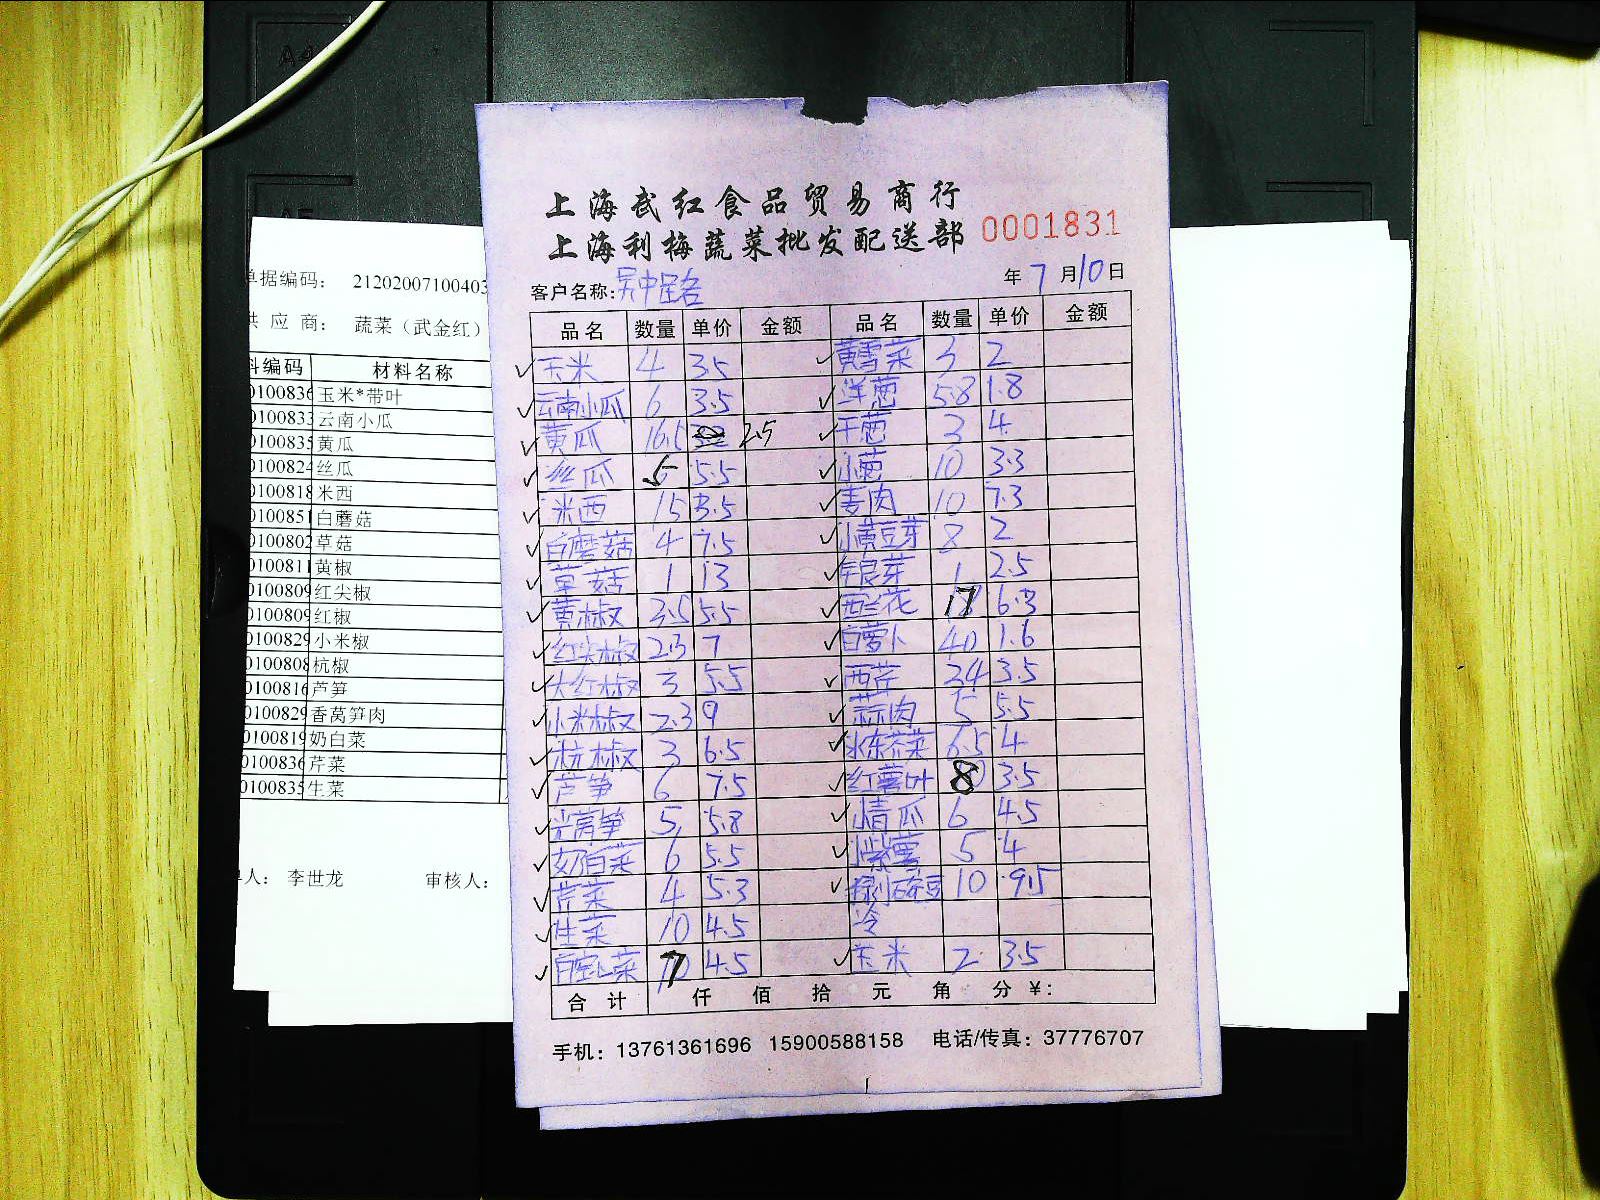 上海武红食品贸易商行
上海利梅蔬菜批发配送部 0001831
客户名称: 吴中 年 7 月 10 日
品名 数量 单价 金额 品名 数量 单价 金额
玉米 4 3.5 黄雪菜 3 2
云南小瓜 6 3.5 洋葱 5.8 1.8
黄瓜 16.5 2.5 干葱 3 4
丝瓜 5 5.5 小葱 10 3.3
米西 15 3.5 姜肉 10 7.3
白磨菇 4 7.5 小黄豆芽 8 2
草菇 1 13 银芽 1 2.5
黄椒 3.5 5.5 西兰花 17 6.3
红尖椒 2.3 7 白萝卜 40 1.6
大红椒 3 5.5 西芹 24 3.5
小米椒 2.3 9 蒜肉 5 5.5
杭椒 3 6.5 水东芥菜 6.5 4
芦笋 6 7.5 红薯叶 8 3.5
光莴笋 5 5.8 小青瓜 6 4.5
奶白菜 6 5.5 小紫薯 5 4
芹菜 4 5.3 10 9.5
生菜 10 4.5 冷
4.5 玉米 2 3.5
合计 仟 佰 拾 元 角 分 ¥:
手机: 13761361696 15900588158 电话/传真: 37776707
单据编码: 21202007100403
供应商: 蔬菜（武金红）
料编码 材料名称
0100836 玉米*带叶
0100833 云南小瓜
0100835 黄瓜
0100824 丝瓜
0100818 米西
0100851 白蘑菇
0100802 草菇
0100811 黄椒
0100809 红尖椒
0100809 红椒
0100829 小米椒
0100808 杭椒
0100816 芦笋
0100829 香莴笋肉
0100819 奶白菜
0100836 芹菜
0100835 生菜
人: 李世龙 审核人: